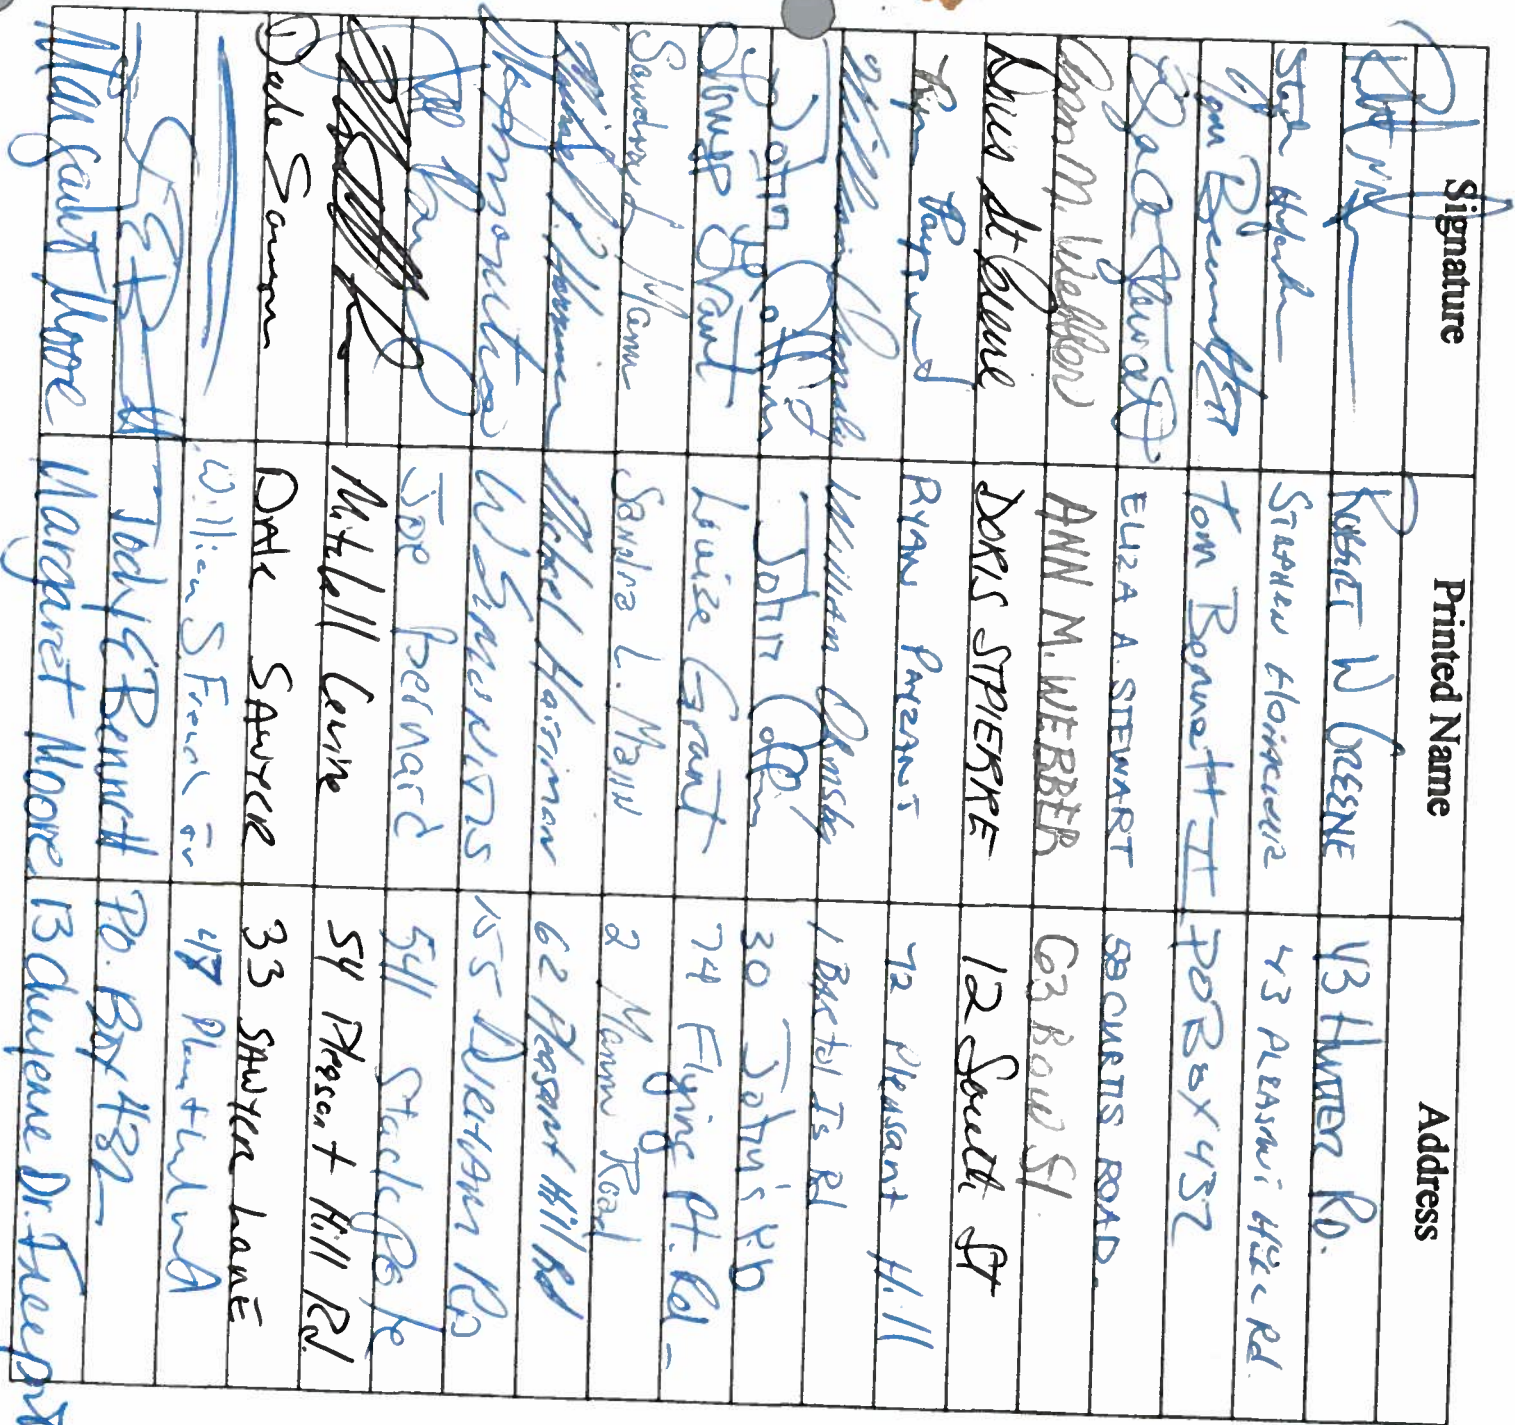 Signature Printed Name Address
ROBERT W GREENE 43 HUNTER RD.
STEPHEN 43 PLEASANT HILL Rd.
Tom Bennett II PO Box 432
ELIZA A. STEWART 58 CURTIS ROAD.
Ann M. Webber ANN M. WEBBER 63 Bow St
Doris St Pierre DORIS STPIERRE 12 South St
Ryan Payzant RYAN PAYZANT 72 Pleasant Hill
William Ormsby WILLIAM ORMSBY 1 Bartol Is Rd
John Coffin John Coffin 30 John's Rd
Louise Grant Louise Grant 74 Flying Pt. Rd
Sandra L Mann Sandra L. Mann 2 Mann Road
Michael Harriman 62 Pleasant Hill Rd
155 Rd
Joe Bernard 541
Mitchell Levine 54 Pleasant Hill Rd.
Dale Sawyer DALE SAWYER 33 SAWYER LANE
William S French Jr 47
Todd E Bennett P.O. Box 432
Margaret Moore Margaret Moore 13 Cheyenne Dr. Freeport